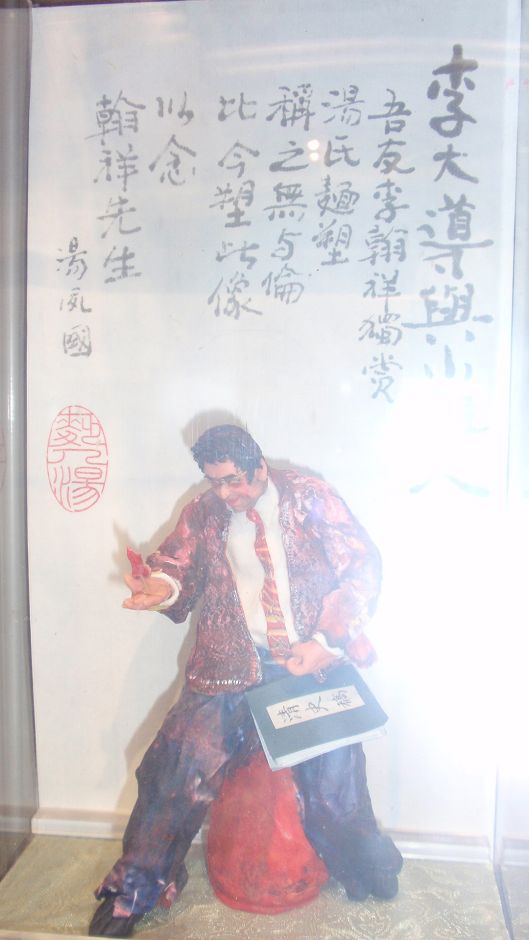 李大導與小麵人
吾友李翰祥獨賞
湯氏麵塑
稱之無与倫
比今塑此像
以念
翰祥先生
湯夙國
麪人湯
清史稿